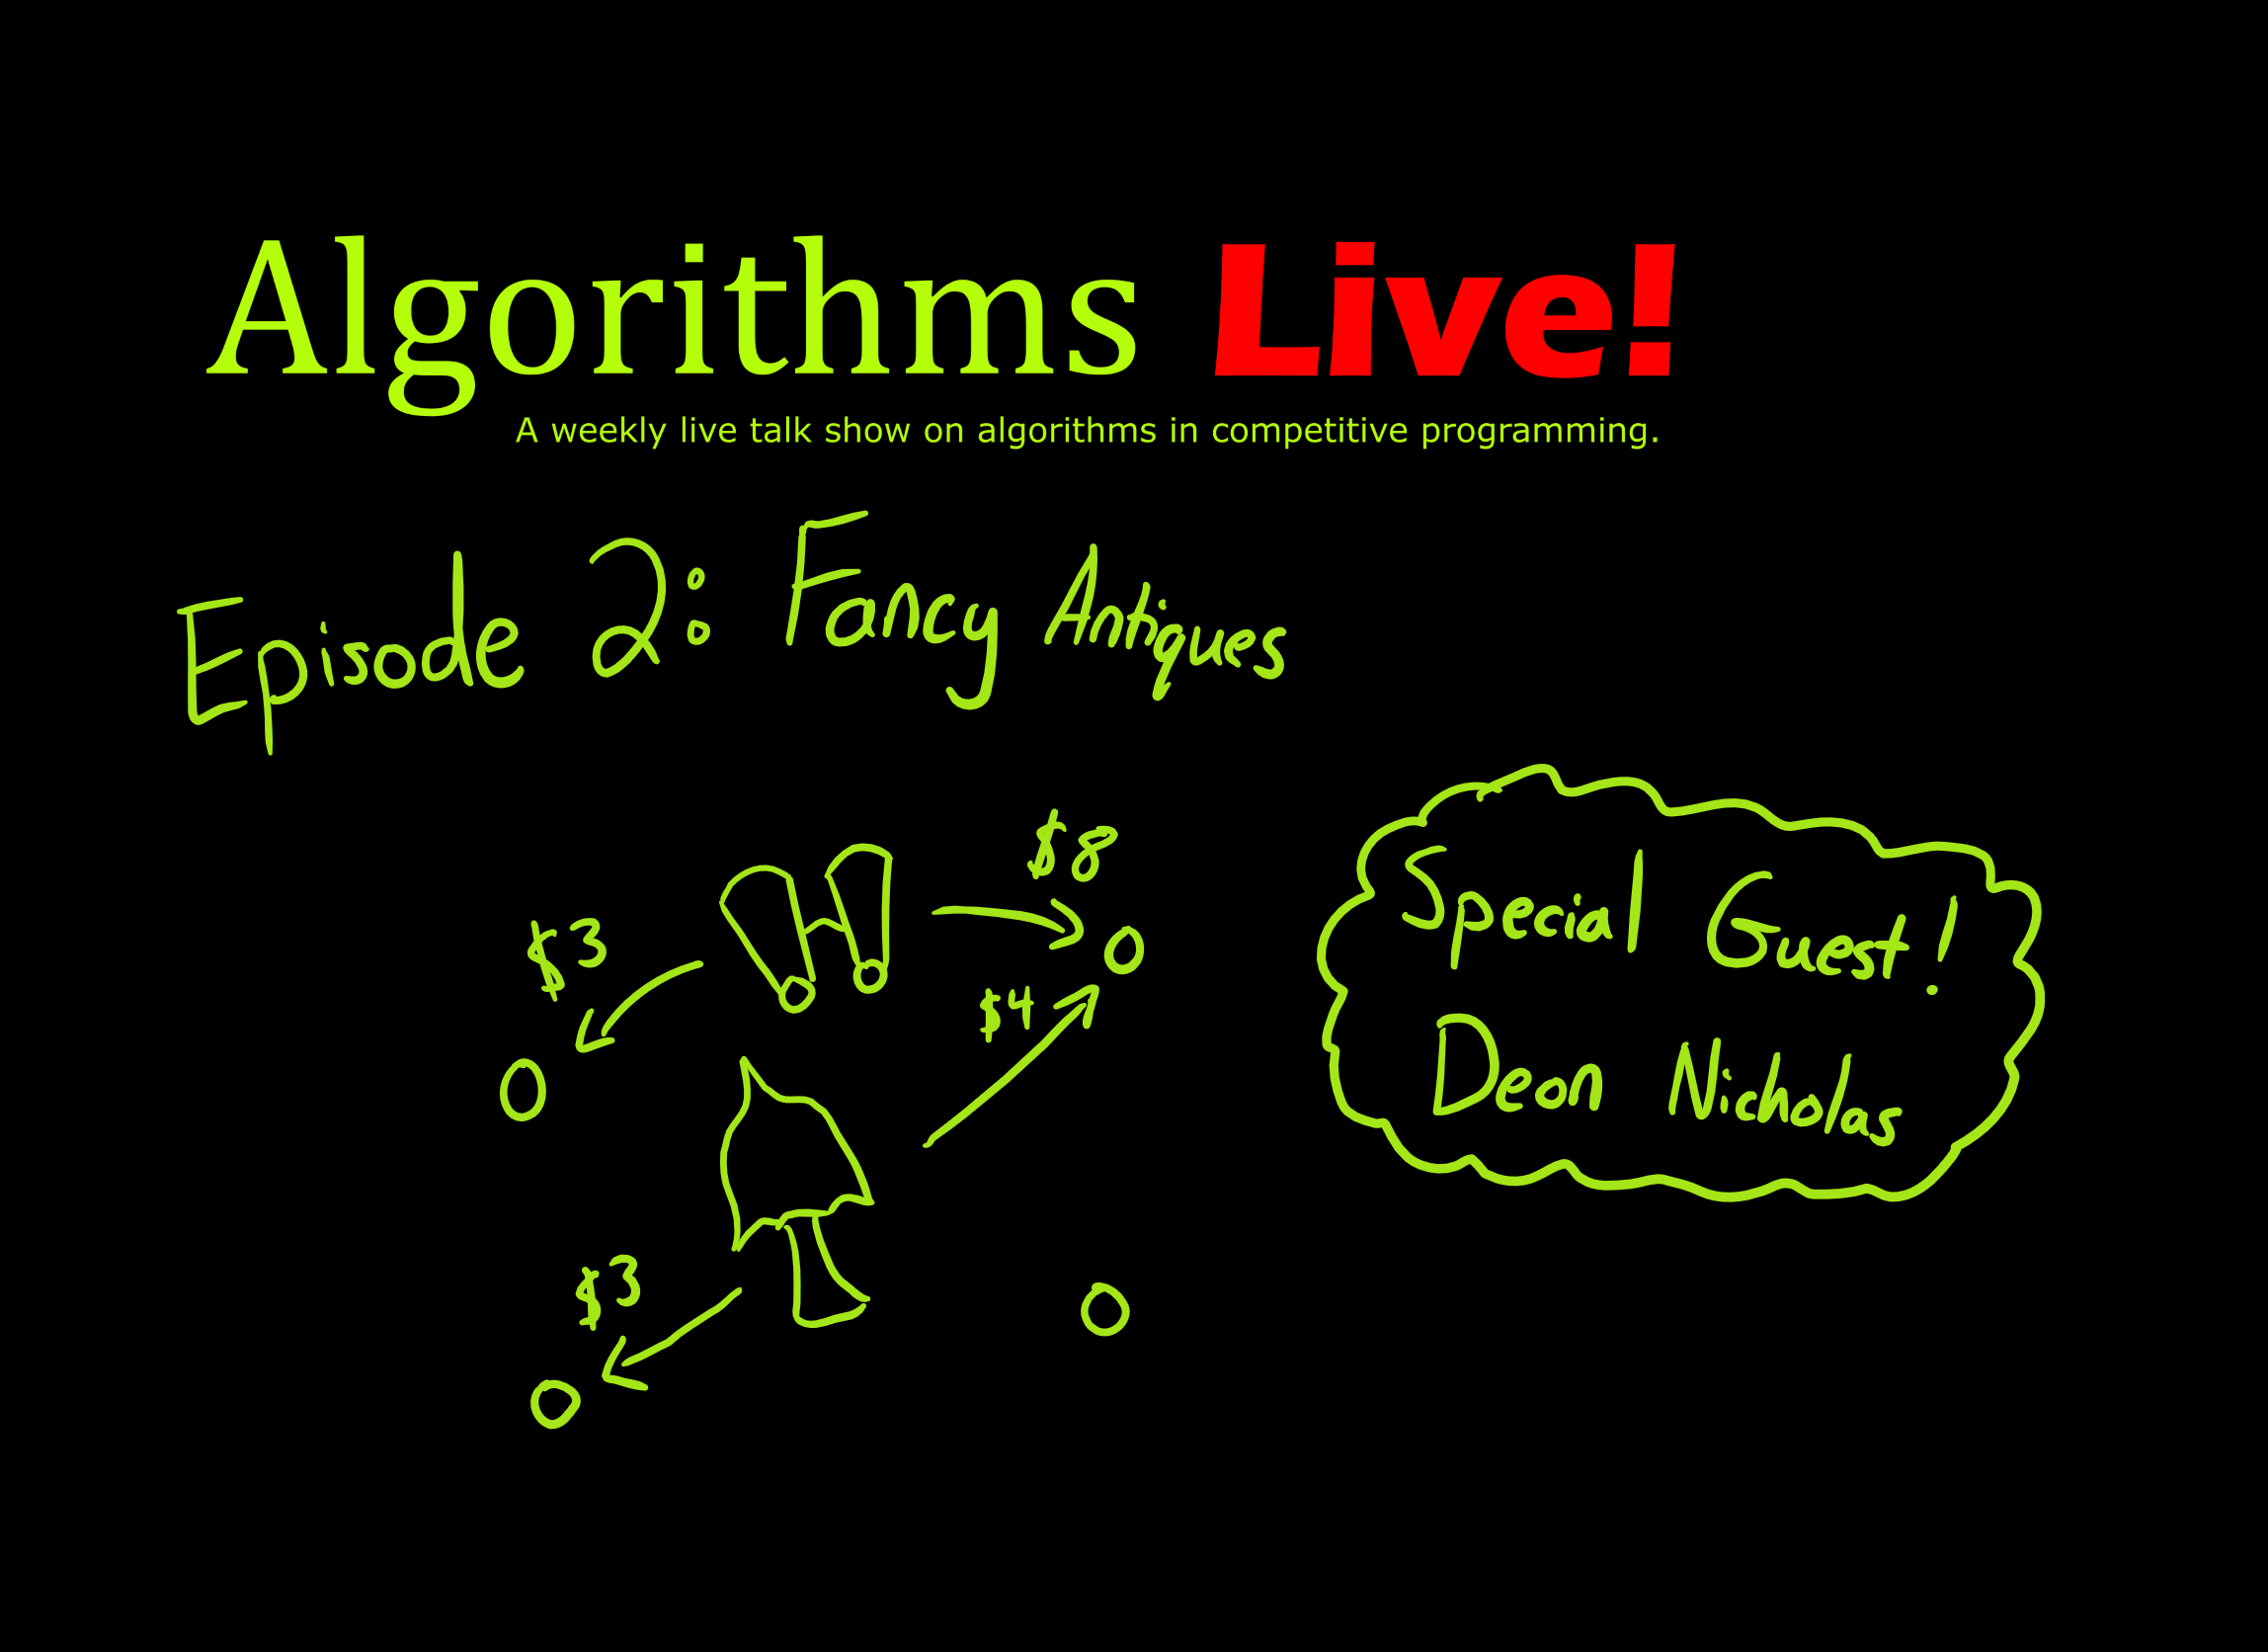 Algorithms Live!
A weekly live talk show on algorithms in competitive programming.
Episode 2: Fancy Antiques
$8
$3
$4
Special Guest!
Deon Nicholas
$3